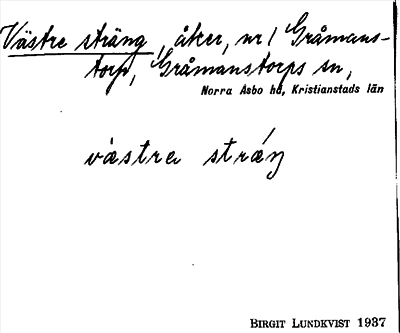 Västre sträng, åker, nr 1 Gråmans-
torp, Gråmanstorps sn,
Norra Åsbo hd, Kristianstads län
västre sträŋ
BIRGIT LUNDKVIST 1937